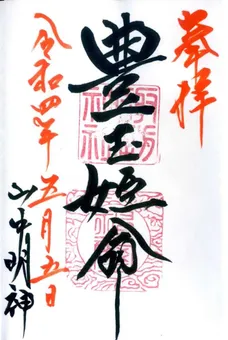 奉拝
豊玉姫命
令和四年五月五日
山中明神